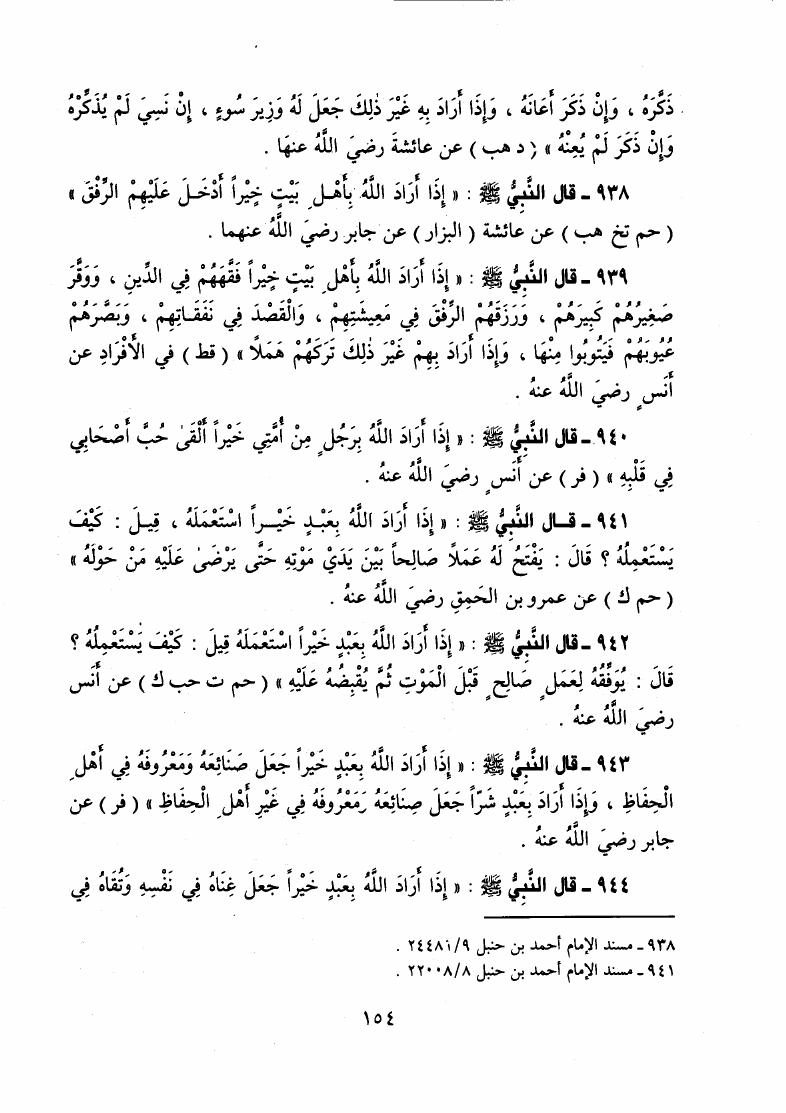 ذَكَّرَهُ ، وَإِنْ ذَكَرَ أَعَانَهُ ، وَإِذَا أَرَادَ بِهِ غَيْرَ ذٰلِكَ جَعَلَ لَهُ وَزِيرَ سُوءٍ ، إِنْ نَسِيَ لَمْ يُذَكِّرْهُ
وَإِنْ ذَكَرَ لَمْ يُعِنْهُ » ( د هب ) عن عائشةَ رضيَ اللَّهُ عنهَا .
٩٣٨ ـ قال النَّبِيُّ ﷺ : « إِذَا أَرَادَ اللَّهُ بِأَهْلِ بَيْتٍ خَيْراً أَدْخَلَ عَلَيْهِمُ الرِّفْقَ »
( حم تخ هب ) عن عائشة ( البزار ) عن جابر رضيَ اللَّهُ عنهما .
٩٣٩ ـ قال النَّبِيُّ ﷺ : « إِذَا أَرَادَ اللَّهُ بِأَهْلِ بَيْتٍ خَيْراً فَقَّهَهُمْ فِي الدِّينِ ، وَوَقَّرَ
صَغِيرُهُمْ كَبِيرَهُمْ ، وَرَزَقَهُمُ الرِّفْقَ فِي مَعِيشَتِهِمْ ، وَالْقَصْدَ فِي نَفَقَاتِهِمْ ، وَبَصَّرَهُمْ
عُيُوبَهُمْ فَيَتُوبُوا مِنْهَا ، وَإِذَا أَرَادَ بِهِمْ غَيْرَ ذٰلِكَ تَرَكَهُمْ هَمَلاً » ( قط ) في الأفْرَادِ عن
أَنسٍ رضيَ اللَّهُ عنهُ .
٩٤٠ ـ قال النَّبِيُّ ﷺ : « إِذَا أَرَادَ اللَّهُ بِرَجُلٍ مِنْ أُمَّتِي خَيْراً أَلْقَىٰ حُبَّ أَصْحَابِي
فِي قَلْبِهِ » ( فر ) عن أَنسٍ رضيَ اللَّهُ عنهُ .
٩٤١ ـ قال النَّبِيُّ ﷺ : « إِذَا أَرَادَ اللَّهُ بِعَبْدٍ خَيْراً اسْتَعْمَلَهُ ، قِيلَ : كَيْفَ
يَسْتَعْمِلُهُ ؟ قَالَ : يَفْتَحُ لَهُ عَمَلاً صَالِحاً بَيْنَ يَدَيْ مَوْتِهِ حَتَّى يَرْضَى عَلَيْهِ مَنْ حَوْلَهُ »
( حم ك ) عن عمرو بن الحَمِقِ رضيَ اللَّهُ عنهُ .
٩٤٢ ـ قال النَّبِيُّ ﷺ : « إِذَا أَرَادَ اللَّهُ بِعَبْدٍ خَيْراً اسْتَعْمَلَهُ قِيلَ : كَيْفَ يَسْتَعْمِلُهُ ؟
قَالَ : يُوَفِّقُهُ لِعَمَلٍ صَالِحٍ قَبْلَ الْمَوْتِ ثُمَّ يُقْبِضُهُ عَلَيْهِ » ( حم ت حب ك ) عن أنس
رضيَ اللَّهُ عنهُ .
٩٤٣ ـ قال النَّبِيُّ ﷺ : « إِذَا أَرَادَ اللَّهُ بِعَبْدٍ خَيْراً جَعَلَ صَنَائِعَهُ وَمَعْرُوفَهُ فِي أَهْلِ
الْحِفَاظِ ، وَإِذَا أَرَادَ بِعَبْدٍ شَرّاً جَعَلَ صَنَائِعَهُ وَمَعْرُوفَهُ فِي غَيْرِ أَهْلِ الْحِفَاظِ » ( فر ) عن
جابر رضيَ اللَّهُ عنهُ .
٩٤٤ ـ قال النَّبِيُّ ﷺ : « إِذَا أَرَادَ اللَّهُ بِعَبْدٍ خَيْراً جَعَلَ غِنَاهُ فِي نَفْسِهِ وَتُقَاهُ فِي
٩٣٨ ـ مسند الإمام أحمد بن حنبل ٩/٢٤٤٨١ .
٩٤١ ـ مسند الإمام أحمد بن حنبل ٨/٢٢٠٠٨ .
١٥٤